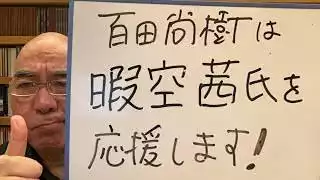 百田尚樹は
暇空茜氏を
応援します!